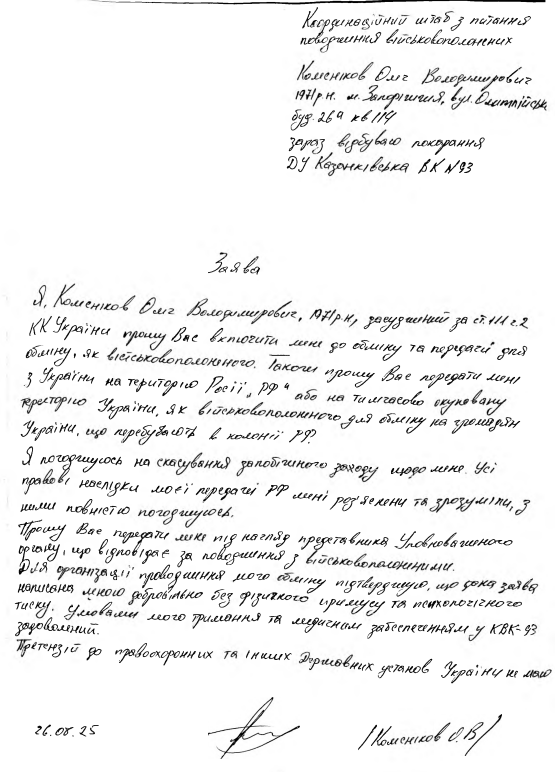 Координаційний штаб з питання
поводження військовополонених
Колєніков Олег Володимирович
1971р.н. м. Запоріжжя, вул. Олімпійська
буд. 26а кв 114
зараз відбуваю покарання
ДУ Казанківська ВК №93
Заява
Я, Колєніков Олег Володимирович, 1971р.н, засуджений за ст.111 ч.2
КК України прошу Вас включити мене до обміну та передачі для
обміну, як військовополоненого. Також прошу Вас передати мені
з України на територію Росії „РФ“ або на тимчасово окуповану
територію України, як військовополоненого для обміну на громадян
України, що перебувають в колонії РФ.
Я погоджуюсь на скасування запобіжного заходу щодо мене. Усі
правові наслідки моєї передачі РФ мені роз'яснени та зрозуміли, з
ними повністю погоджуюсь.
Прошу Вас передати мене під нагляд представника Уповноваженого
органу, що відповідає за поводження з військовополонними.
Для організації проводження мого обміну підтверджую, що дана заява
написана мною добровільно без фізичного примусу та психологічного
тиску. Умовами мого тримання та медичним забеспеченням у КВК-93
задоволений.
Претензій до правоохоронних та інших Державних установ України не маю
26.08.25 /Колєніков О.В/